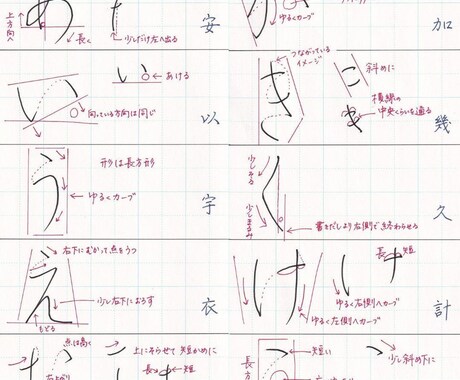 あ
上方向へ
長く
少しだけ左へ出る
安
い
あける
向いている方向は同じ
以
う
形は長方形
ゆるくカーブ
宇
え
右下にむかって点をうつ
少し右下におろす
もどる
衣
点は高く
上にそらせて短かめに
長
か
ゆるくカーブ
加
き
つながっている
イメージ
斜めに
横線の
中央くらいを通る
幾
く
少しそる
少しまるみ
書きだしより右側で終わらせる
久
け
長
短
ゆるく右側へカーブ
ゆるく左側へカーブ
計
短い
少し斜め下に